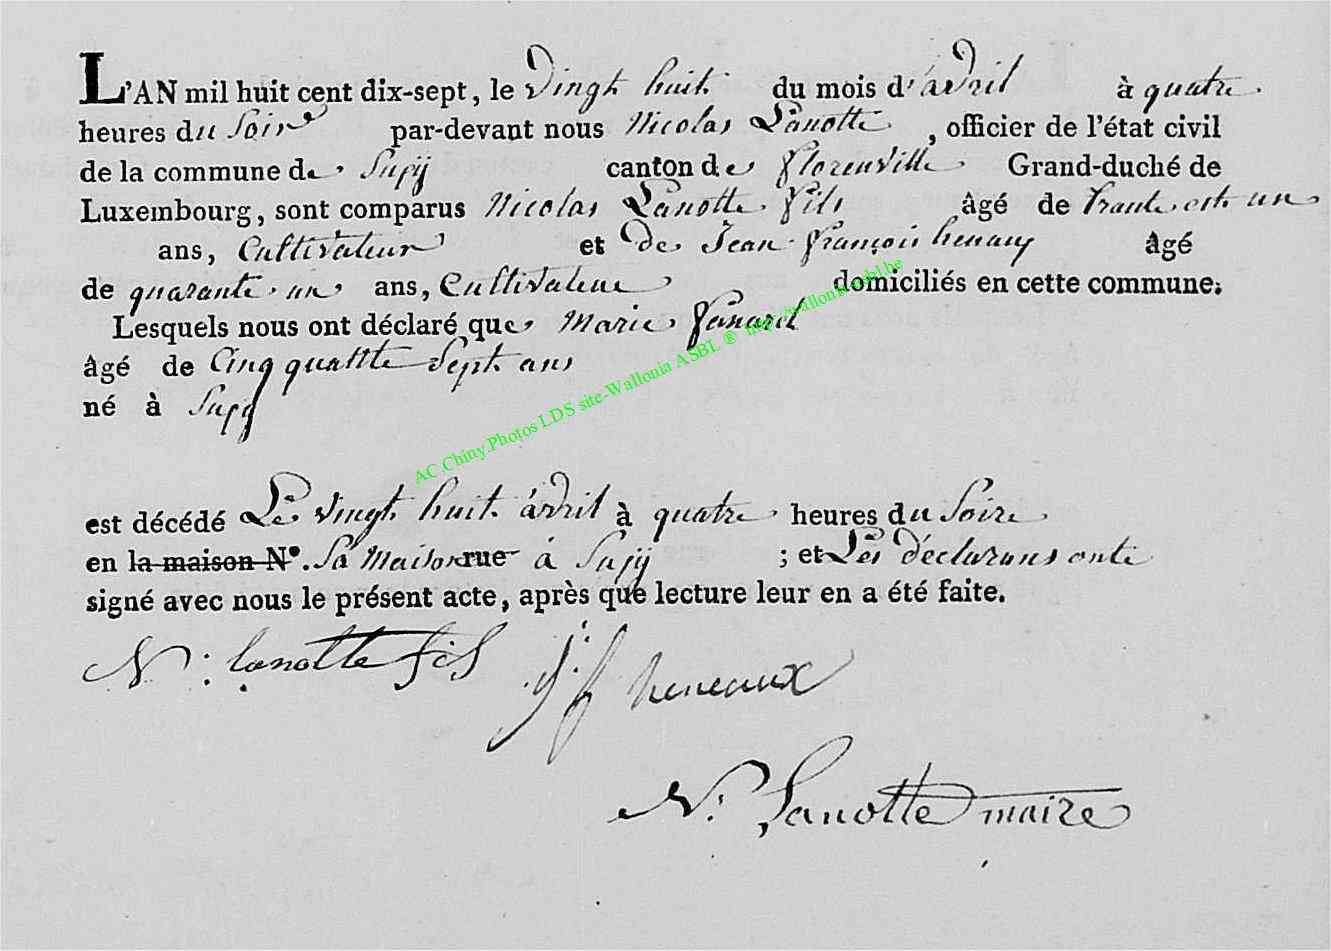 L'AN mil huit cent dix-sept, le Vingt huit du mois d'avril à quatre
heures du Soire par-devant nous Nicolas Lanotte , officier de l'état civil
de la commune de Supÿ canton de florenville Grand-duché de
Luxembourg, sont comparus Nicolas Lanotte fils âgé de trante et un
ans, Cultivateur et de Jean françois henaux âgé
de quarante un ans, Cultivateur domiciliés en cette commune.
Lesquels nous ont déclaré que Marie fanard
âgé de Cinq quantte Sept ans
né à Supÿ
est décédé Le vingt huit avril à quatre heures du Soire
en la maison N°. Sa Maison rue à Supÿ ; et Les déclarans onti
signé avec nous le présent acte, après que lecture leur en a été faite.
N: lanotte fils j: f heneaux
N: Lanotte maire
AC Chiny Photos LDS site-Wallonia ASBL ® http://wallonia-asbl.be